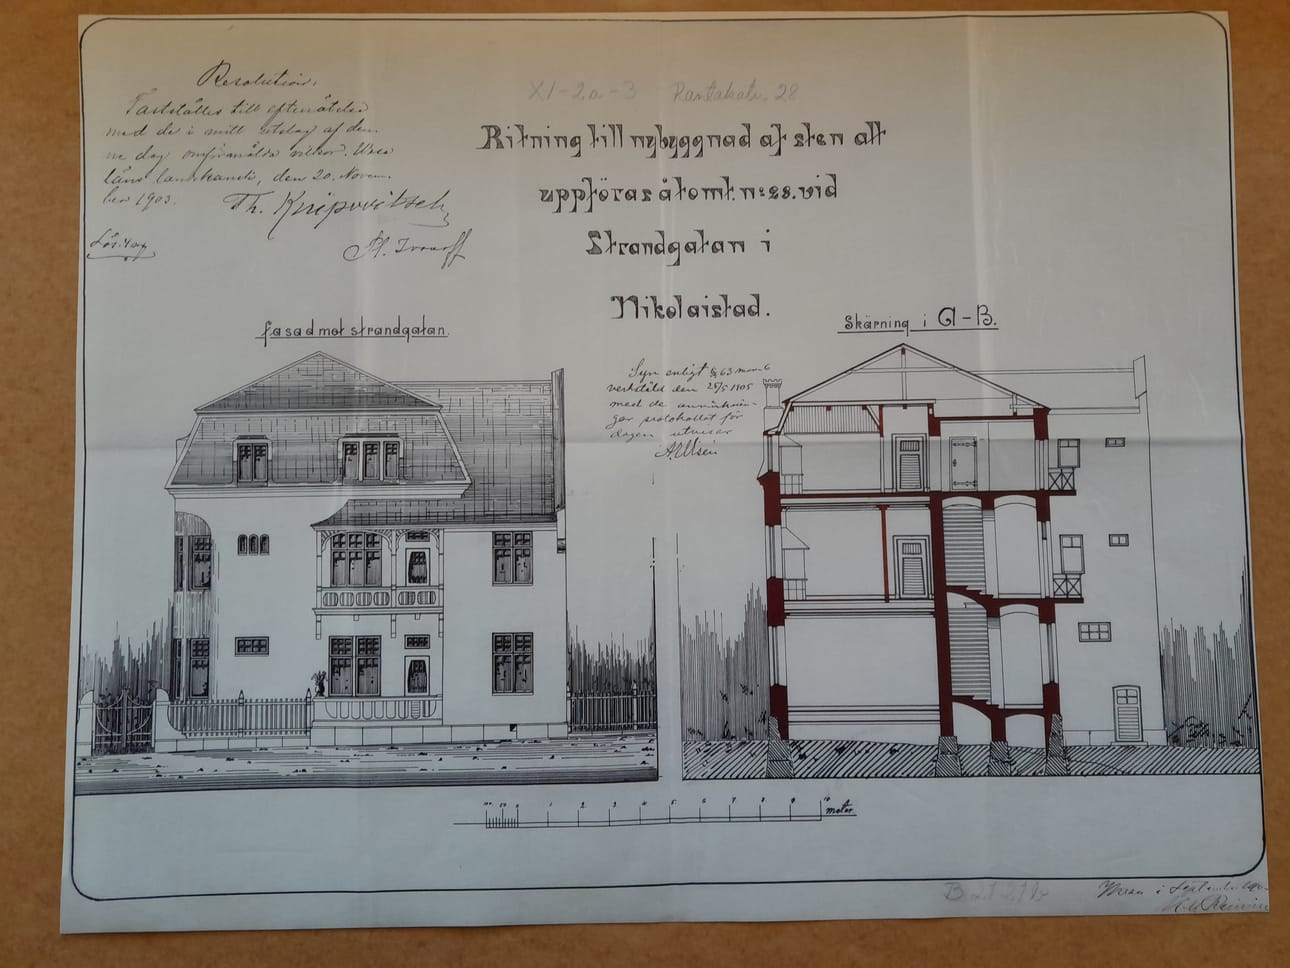 Resolution:
Fastställes till efterrättelse
med de i mitt utslag af den-
na dag omförmälda vilkor. Wasa
läns landskansli, den 20. Novem-
ber 1903.
Th. Knipovitsch
Lös: 4
XI-2a-3 Rantakatu 28
Ritning till nybyggnad af sten att
uppföras å tomt. n:28. vid
Strandgatan i
Nikolaistad.
fasad mot strandgatan.
Skärning i A-B.
Syn enligt § 63 mom 6
verkställd den 25/5 1905
med de anmärknin-
gar protokollet för
dagen utvisar
100 50 0 1 2 3 4 5 6 7 8 9 10 meter
Wasa i September